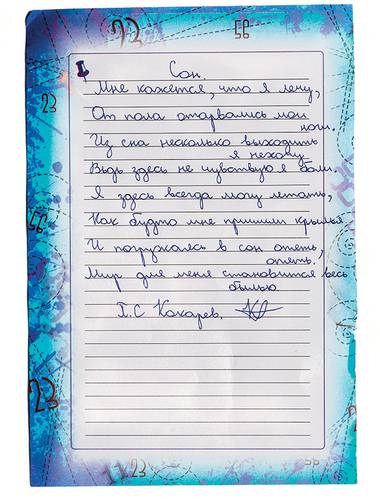 23
56
Сон.
Мне кажется, что я лечу,
23
От пола оторвались мои
ноги.
Из сна несколько выходить
я нехочу
Ведь здесь не чувствую я боли.
Я здесь всегда могу летать,
Как будто мне пришили крылья
56
И погружаясь в сон опять,
опять,
Мир для меня становится весь
былью.
Г.С Кокарев.
23
23
56